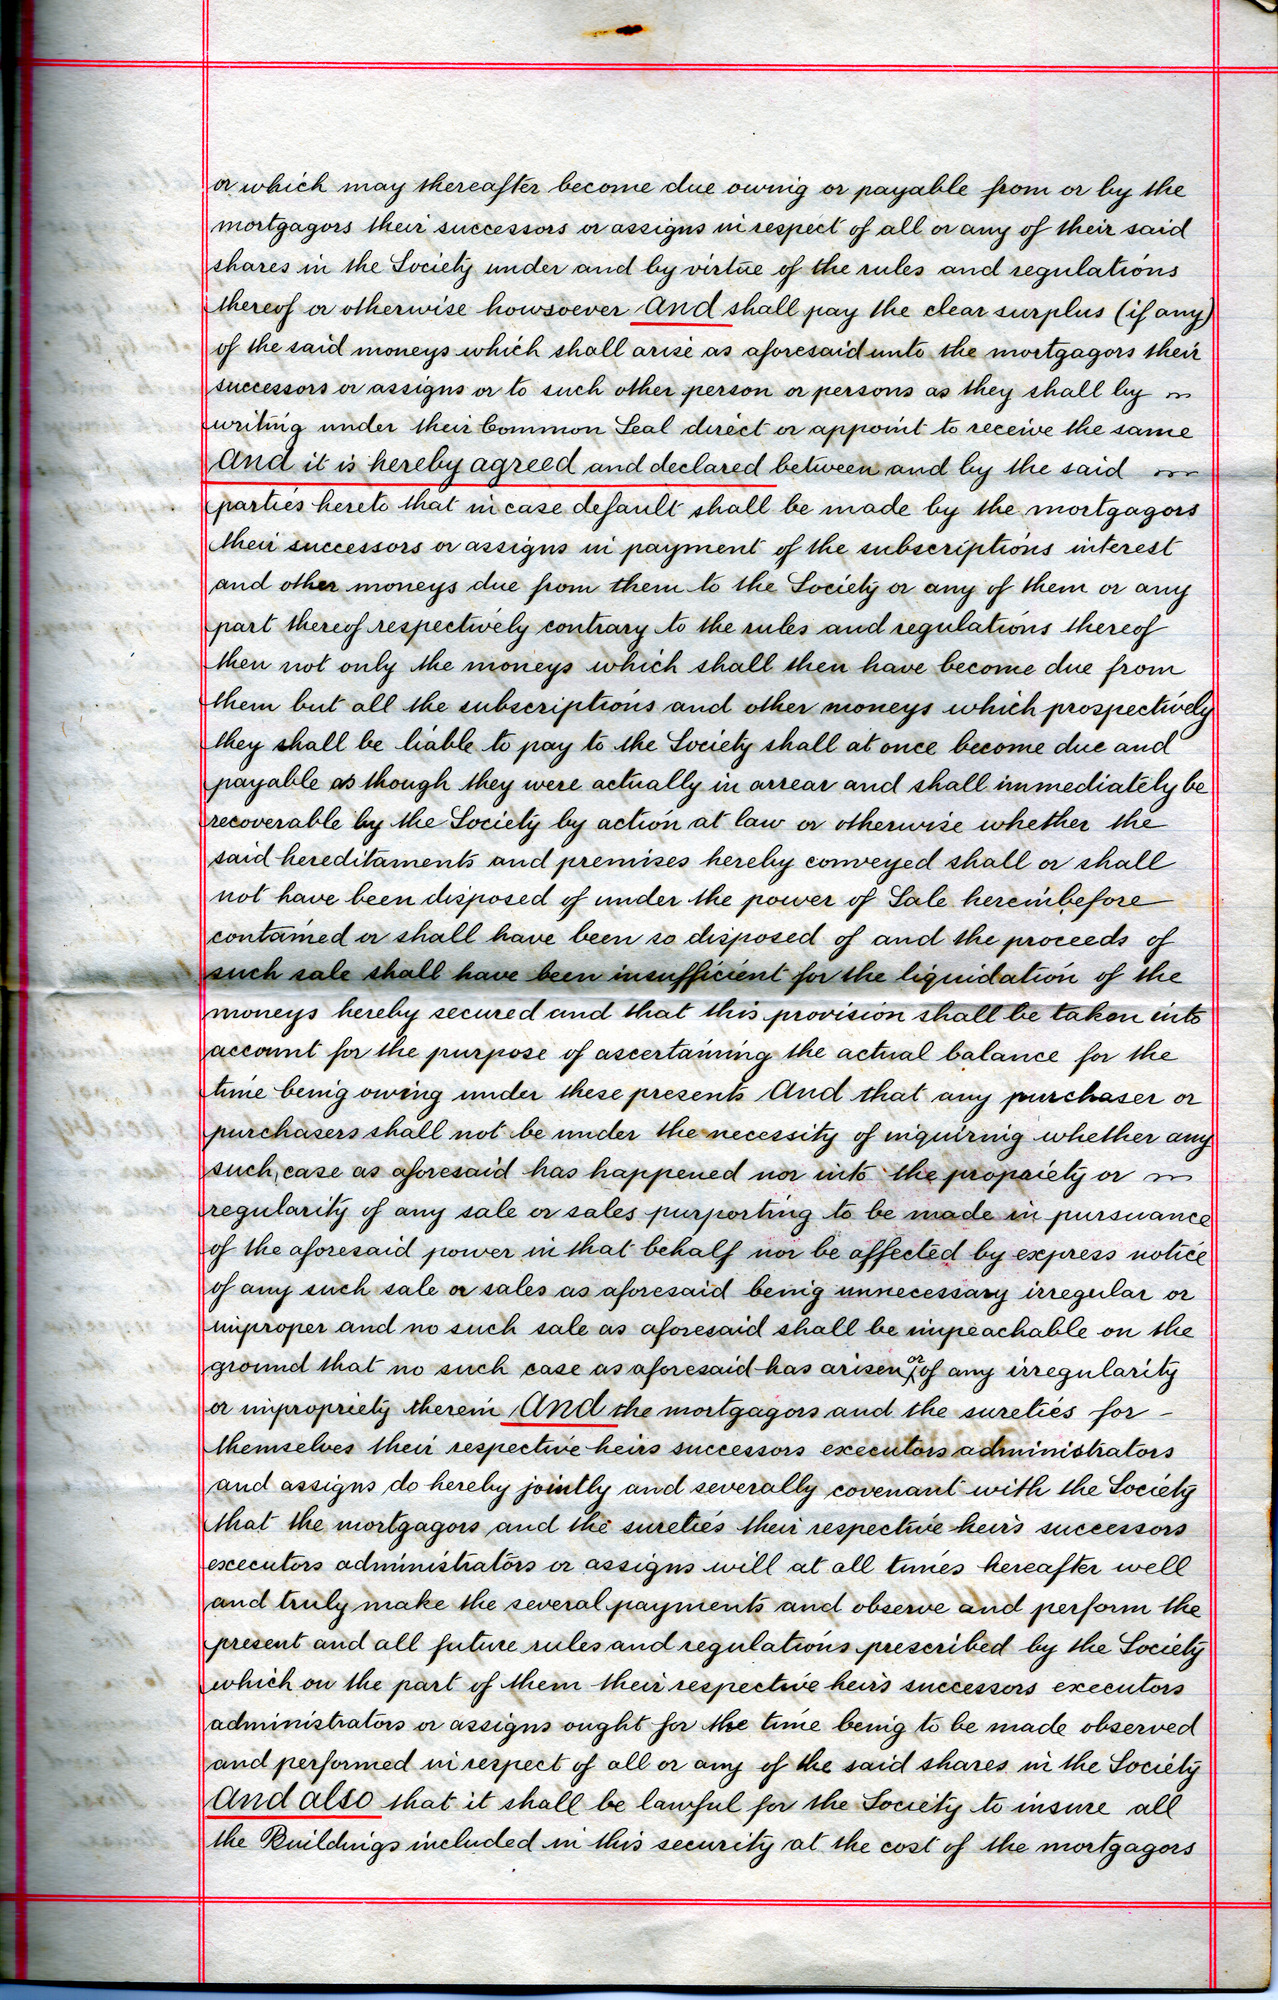 or which may thereafter become due owing or payable from or by the
mortgagors their successors or assigns in respect of all or any of their said
shares in the Society under and by virtue of the rules and regulations
thereof or otherwise howsoever And shall pay the clear surplus (if any)
of the said moneys which shall arise as aforesaid unto the mortgagors their
successors or assigns or to such other person or persons as they shall by
writing under their Common Seal direct or appoint to receive the same
And it is hereby agreed and declared between and by the said
parties hereto that in case default shall be made by the mortgagors
their successors or assigns in payment of the subscriptions interest
and other moneys due from them to the Society or any of them or any
part thereof respectively contrary to the rules and regulations thereof
then not only the moneys which shall then have become due from
them but all the subscriptions and other moneys which prospectively
they shall be liable to pay to the Society shall at once become due and
payable as though they were actually in arrear and shall immediately be
recoverable by the Society by action at law or otherwise whether the
said hereditaments and premises hereby conveyed shall or shall
not have been disposed of under the power of Sale hereinbefore
contained or shall have been so disposed of and the proceeds of
such sale shall have been insufficient for the liquidation of the
moneys hereby secured and that this provision shall be taken into
account for the purpose of ascertaining the actual balance for the
time being owing under these presents And that any purchaser or
purchasers shall not be under the necessity of inquiring whether any
such case as aforesaid has happened nor into the propriety or
regularity of any sale or sales purporting to be made in pursuance
of the aforesaid power in that behalf nor be affected by express notice
of any such sale or sales as aforesaid being unnecessary irregular or
improper and no such sale as aforesaid shall be impeachable on the
ground that no such case as aforesaid has arisen or of any irregularity
or impropriety therein And the mortgagors and the sureties for
themselves their respective heirs successors executors administrators
and assigns do hereby jointly and severally covenant with the Society
that the mortgagors and the sureties their respective heirs successors
executors administrators or assigns will at all times hereafter well
and truly make the several payments and observe and perform the
present and all future rules and regulations prescribed by the Society
which on the part of them their respective heirs successors executors
administrators or assigns ought for the time being to be made observed
and performed in respect of all or any of the said shares in the Society
And also that it shall be lawful for the Society to insure all
the Buildings included in this security at the cost of the mortgagors